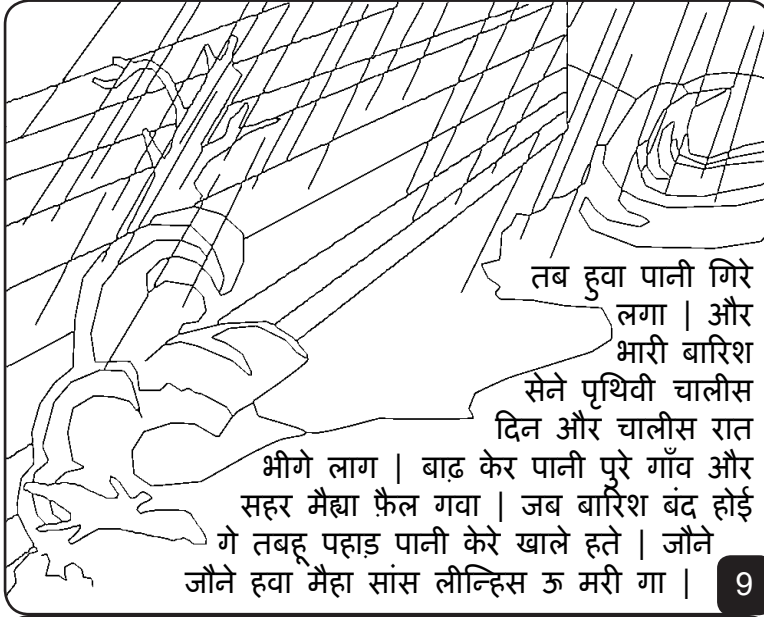 तब हुवा पानी गिरे
लगा | और
भारी बारिश
सेने पृथिवी चालीस
दिन और चालीस रात
भीगे लाग | बाढ़ केर पानी पुरे गाँव और
सहर मैह्या फ़ैल गवा | जब बारिश बंद होई
गे तबहू पहाड़ पानी केरे खाले हते | जौने
जौने हवा मैहा सांस लीन्हिस ऊ मरी गा |
9